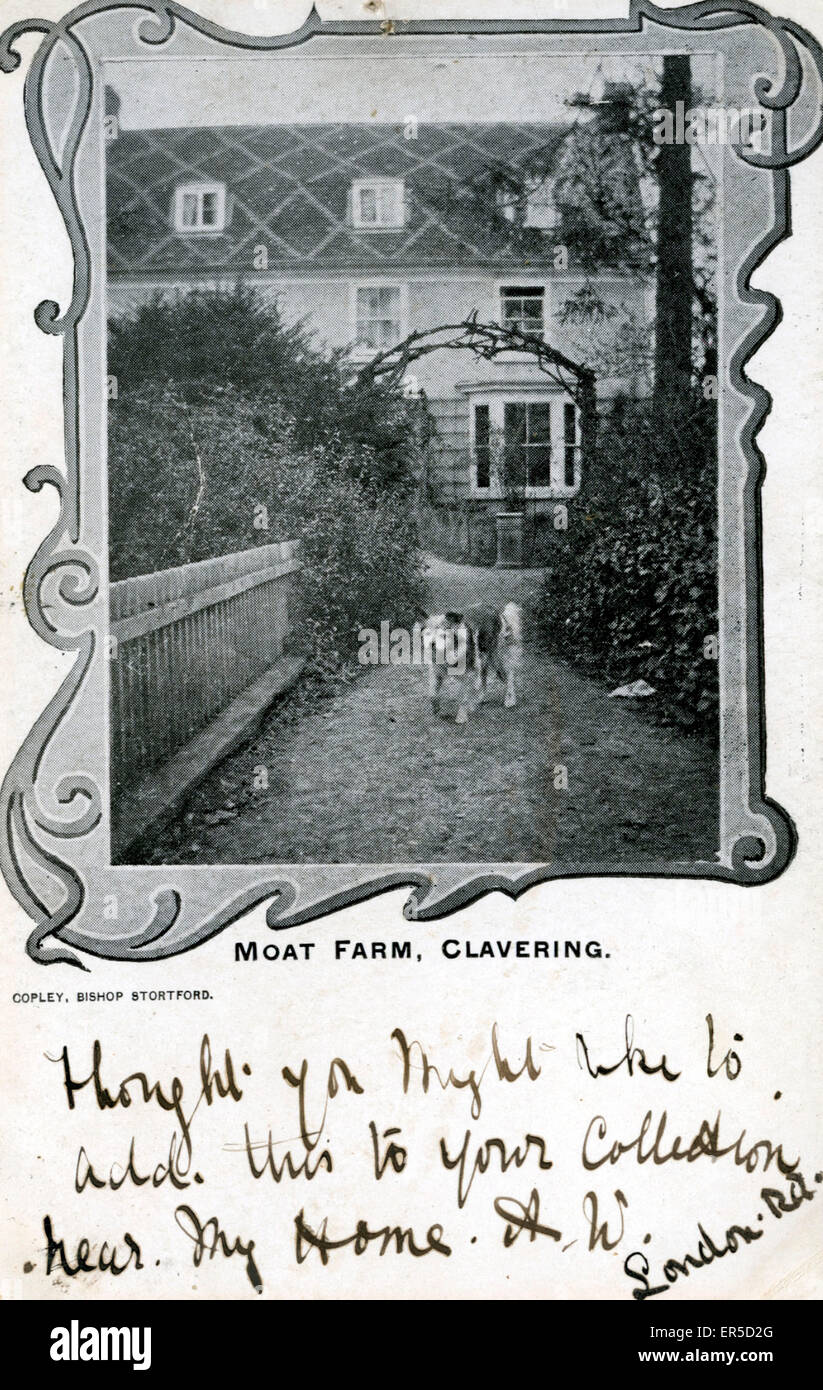 MOAT FARM, CLAVERING.
COPLEY, BISHOP STORTFORD.
Thought you Might like to
add. this to your Collection
near. My Home. A. W.
London. Rd.
alamy
alamy stock photo
ER5D2G
www.alamy.com